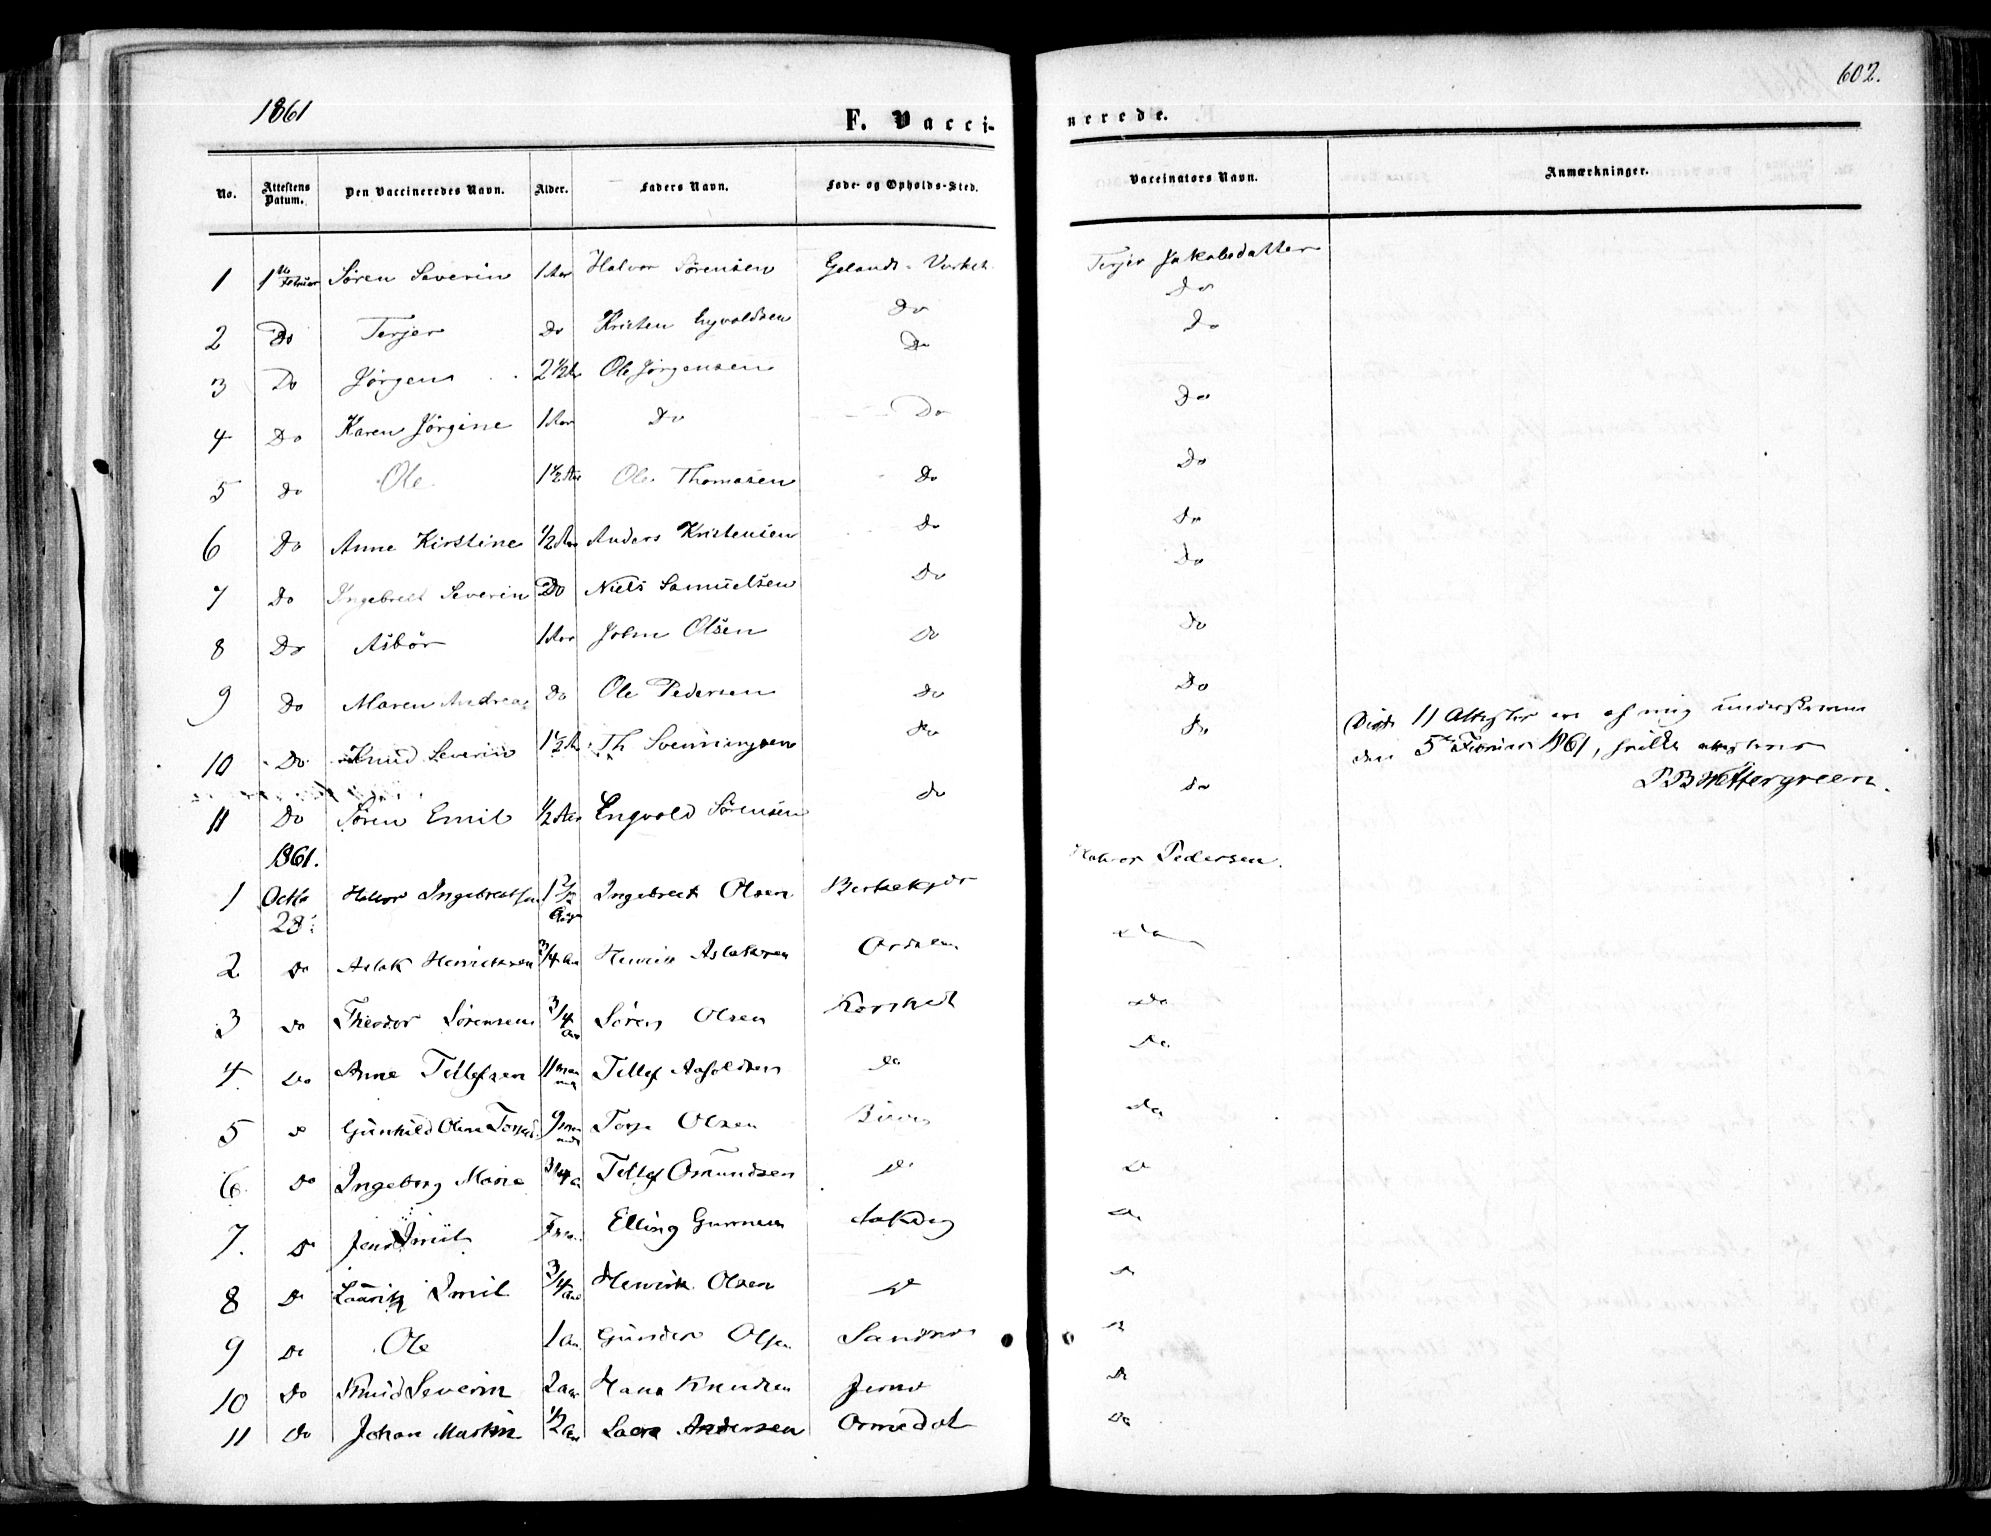 1861
602.
F. Vacci-
nerede.
No. Attestens Datum. Den Vaccineredes Navn. Alder. Faders Navn. Føde- og Opholds-Sted. Vaccinators Navn. Anmærkninger.
1 1ste Februar Søren Severin 1 Aar Halvor Sørensen Verket Terjer Jakobsdatter
2 Do Terjer Do Kristen Do Do
3 Do Jørgen 2 1/2 Aar Ole Jørgensen Do Do
4 Do Karen Jørgine 1 Aar Do Do Do
5 Do Ole 1 1/2 Aar Ole Thomasen Do Do
6 Do Anne Kirstine 1/2 Aar Anders Kristensen Do Do
7 Do Ingebrett Severin Do Niels Samuelsen Do Do
8 Do Asbør 1 Aar John Olsen Do Do
9 Do Maren Andrea Do Ole Pedersen Do Do
10 Do Knud Severin 1 1/2 Aar Th Svenningsen Do Do
11 Do Søren Emil 1/2 Aar Engvold Sørensen Do Do
Disse 11 Attester ere af mig
den 5te Februar 1861,
1861.
1 Octbr 28. Halvor Ingebretsen Ingebret Olsen Halvor Pedersen.
2 Do Aslak Henricksen 3/4 Aar Henrik Aslaksen Do
3 Do Theodor Sørensen 3/4 Aar Søren Olsen Do
4. Do Anne Tellefsen 11 Tellef Do Do
5 Do Gunhild Oline 9 Terje Olsen Do
6. Do Ingeborg Marie 3/4 A Tellef Osmundsen Do Do
7. Do Jens Emil Elling Gunnersen Do
8 Do Emil 3/4 Aar Henrik Olsen Do Do
9 Do Ole 1 Aar Gunder Olsen Do
10 Do Knud Severin 2 Aar Hans Knudsen Do
11 Do Johan Martin 1/2 Aar Lars Andersen Do